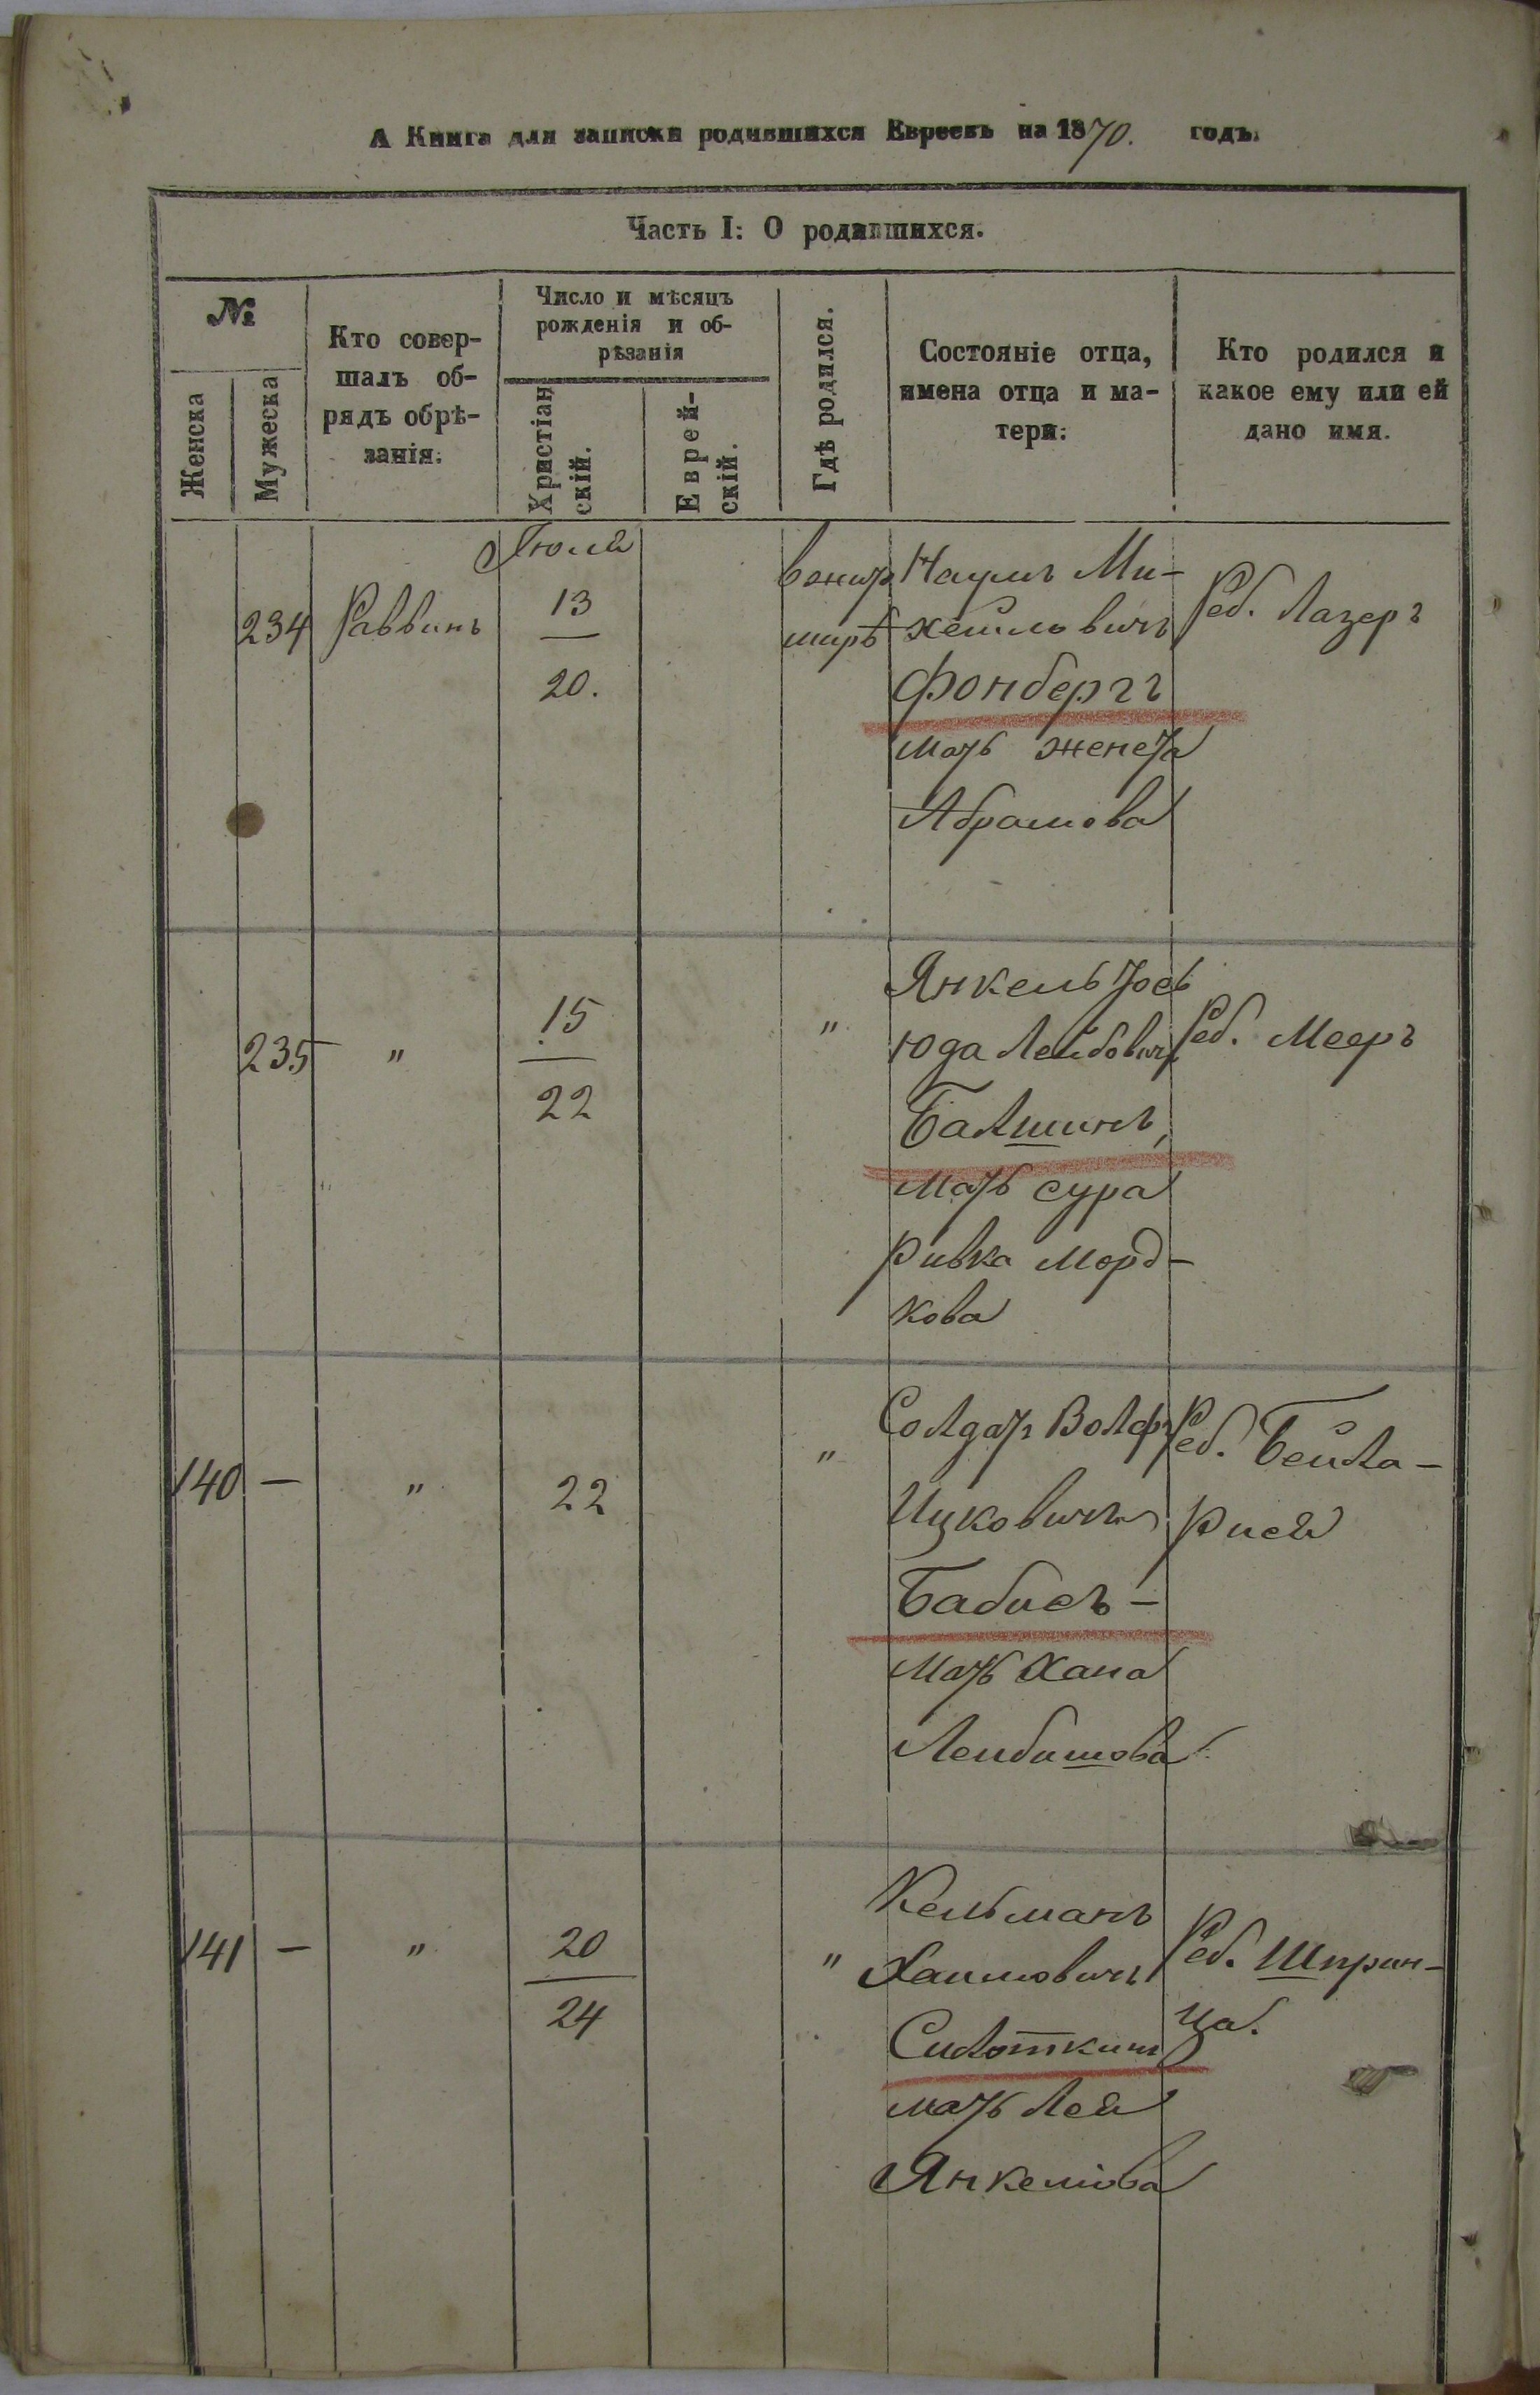 А Книга для записки родившихся Евреевъ на 1870. годъ.
Часть I: О родившихся.
№
Женска
Мужеска
Кто совер-
шалъ об-
рядъ обрѣ-
занія.
Число и мѣсяцъ
рожденія и об-
рѣзанія
Христіан
скій.
Еврей-
скій.
Гдѣ родился.
Состояніе отца,
имена отца и ма-
тери:
Кто родился и
какое ему или ей
дано имя.
Іюля
234 Раввинъ
13
20.
вжит
мирѣ
Наумъ Ми-
хелиовичъ
Фонбергъ
мать женета
Абрамова
Реб. Лазеръ
235 "
15
22
"
Янкель
Юда Лейбович
Балшинъ,
мать сура
РивкаМорд-
кова
Реб. Мееръ
140 — "
22
"
Солдат Волфъ
Ицковичъ
Бабисъ —
мать Хана
Лейбишова
Реб. Бейла-
Рися
141 — "
20
24
"
Кельманъ
Хаимовичъ
Силоткин
мать Лея
Янкелиова
Реб. Шприн-
ца.